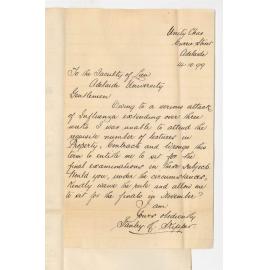 Unity Chas
Adelaide
14.10.99
To the Faculty of Law
Adelaide University
Gentlemen
Owing to a serious attack
of Influenza extending over three
weeks I was unable to attend the
requisite number of lectures in
Property, Contracts and Wrongs this
term to entitle me to sit for the
final examinations in those subjects
Would you, under the circumstances,
kindly waive the rule and allow me
to sit for the finals in November?
I am
Yours obediently
Stanley C. Skipper